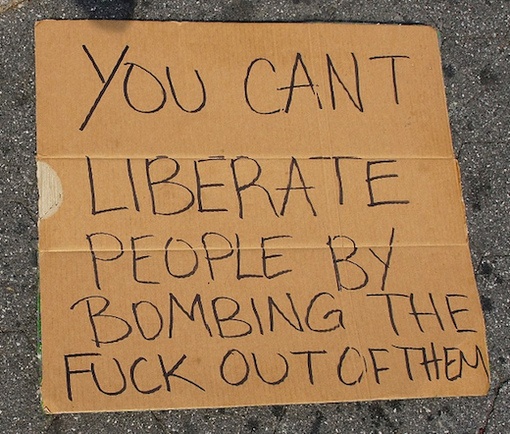 YOU CANT
LIBERATE
PEOPLE BY
BOMBING THE
FUCK OUT OF THEM